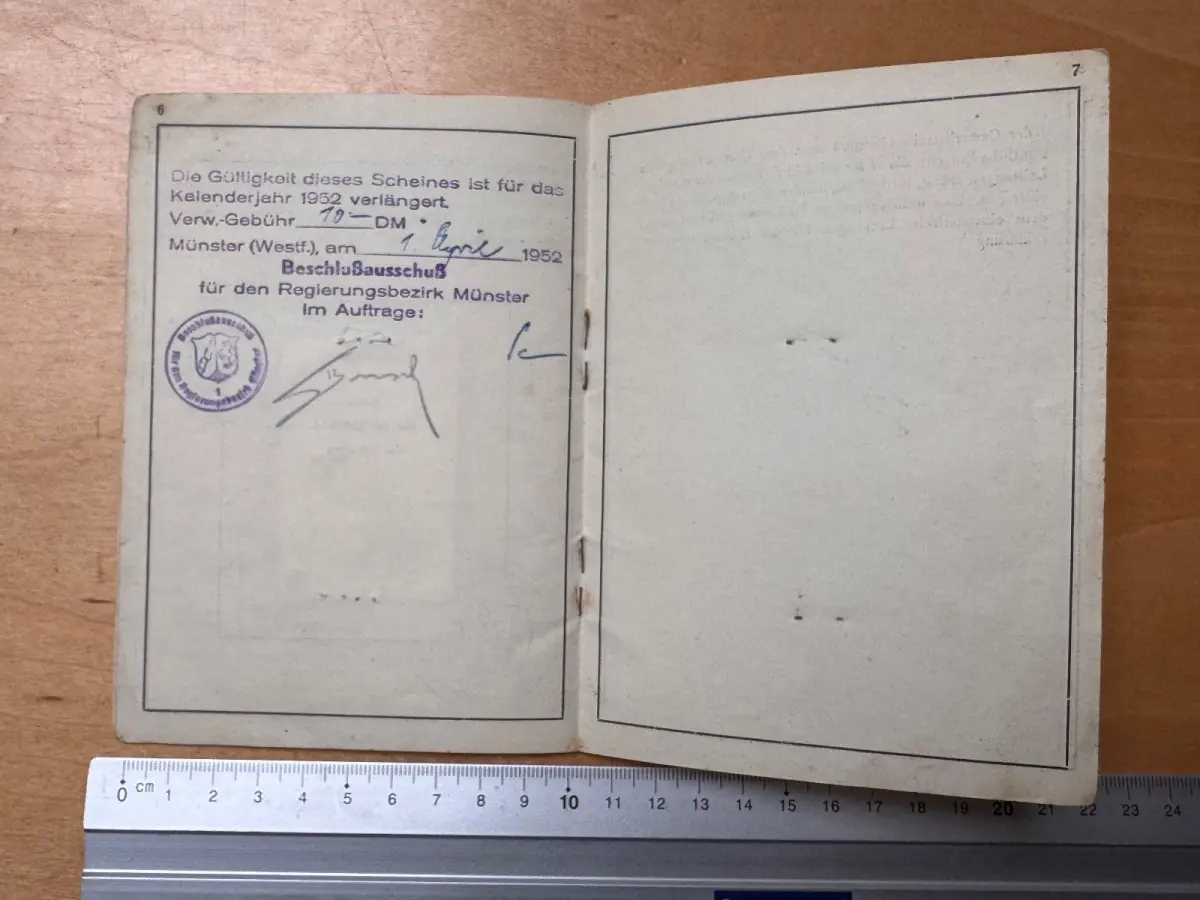 6
Die Gültigkeit dieses Scheines ist für das
Kalenderjahr 1952 verlängert.
Verw.-Gebühr 10— DM
Münster (Westf.), am 1. April 1952
Beschlußausschuß
für den Regierungsbezirk Münster
Im Auftrage:
Beschlußausschuß
für den Regierungsbezirk Münster
1
7
0 cm 1 2 3 4 5 6 7 8 9 10 11 12 13 14 15 16 17 18 19 20 21 22 23 24